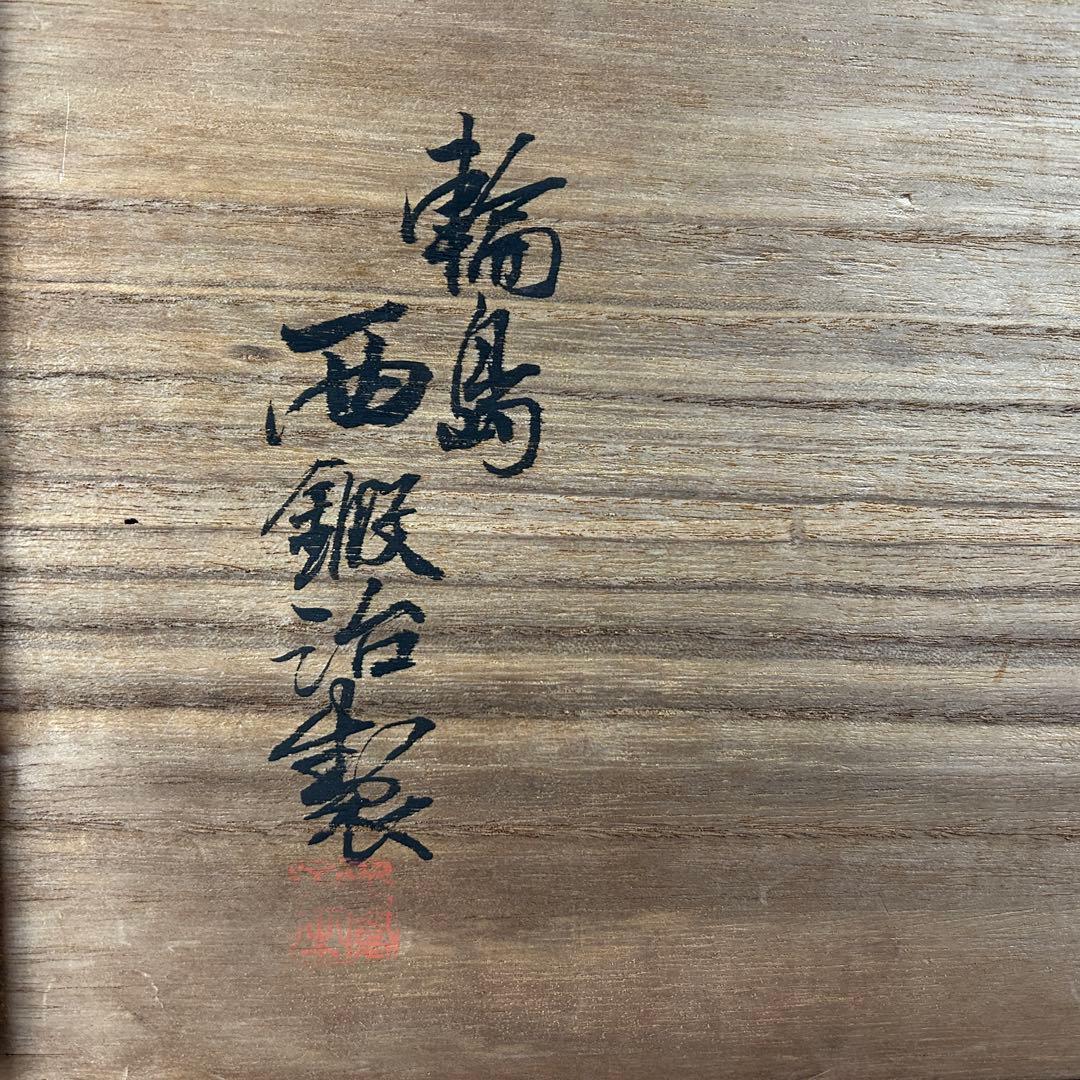 輪島
西鍛治製